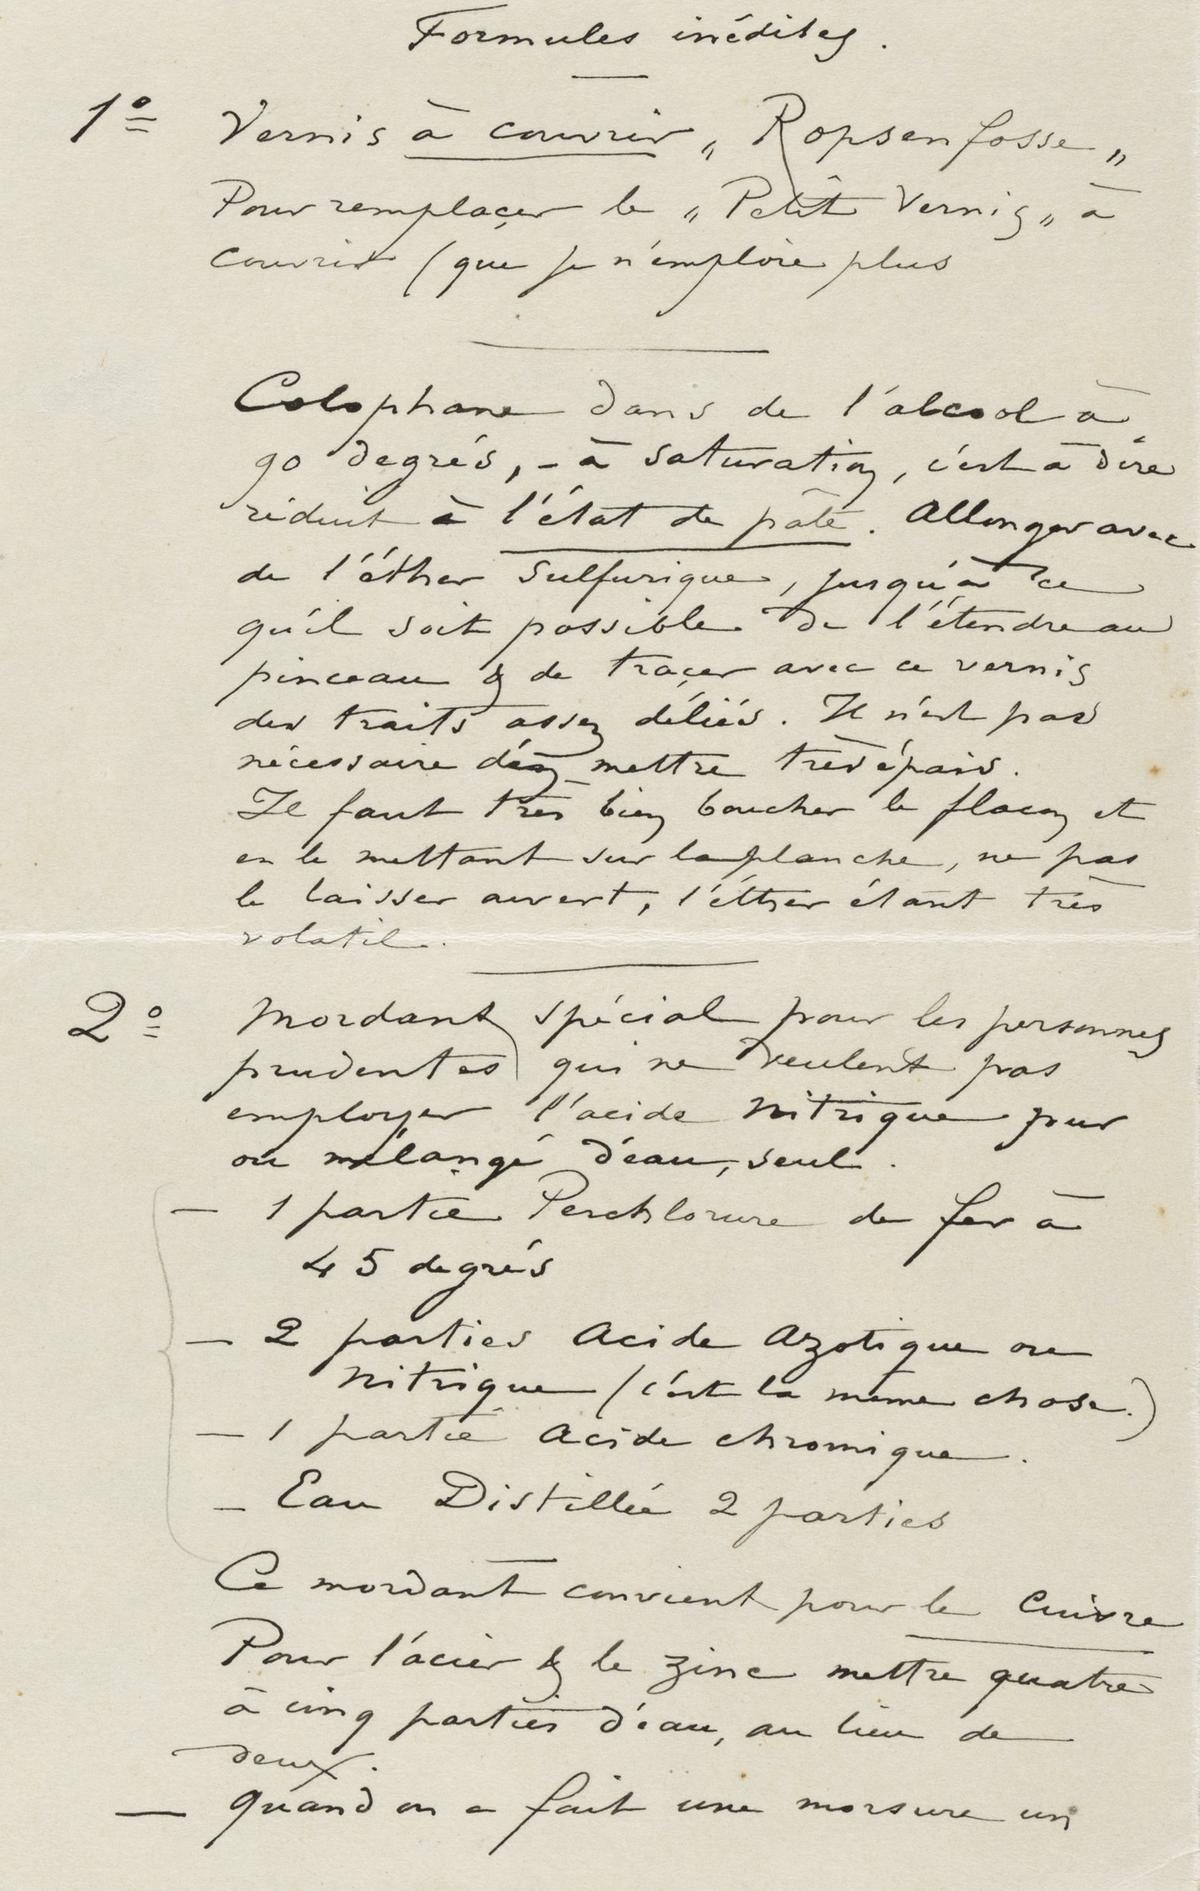 Formules inédites.
1º Vernis à couvrir „ Ropsenfosse „
Pour remplaçer le „ Petit Vernis „ à
couvrir (que je n'emploie plus
Colophane dans de l'alcool à
90 degrés, - à saturation, c'est à dire
réduit à l'état de pâte. Allonger avec
de l'éther sulfurique, jusqu'à ce
qu'il soit possible de l'étendre au
pinceau & de traçer avec ce vernis
des traits assez déliés. Il n'est pas
nécessaire d'en mettre très épais.
Il faut très bien boucher le flacon et
en le mettant sur la planche, ne pas
le laisser ouvert, l'éther étant très
volatil.
2º Mordant spécial pour les personnes
prudentes qui ne veulent pas
employer l'acide nitrique pur
ou mélangé d'eau, seul.
— 1 partie Perchlorure de fer à
45 degrés
— 2 parties Acide Azotique ou
nitrique (c'est la même chose.)
— 1 partie Acide chromique.
— Eau Distillée 2 parties
Ce mordant convient pour le Cuivre
Pour l'acier & le zinc mettre quatre
à cinq parties d'eau, au lieu de
deux.
— Quand on a fait une morsure un